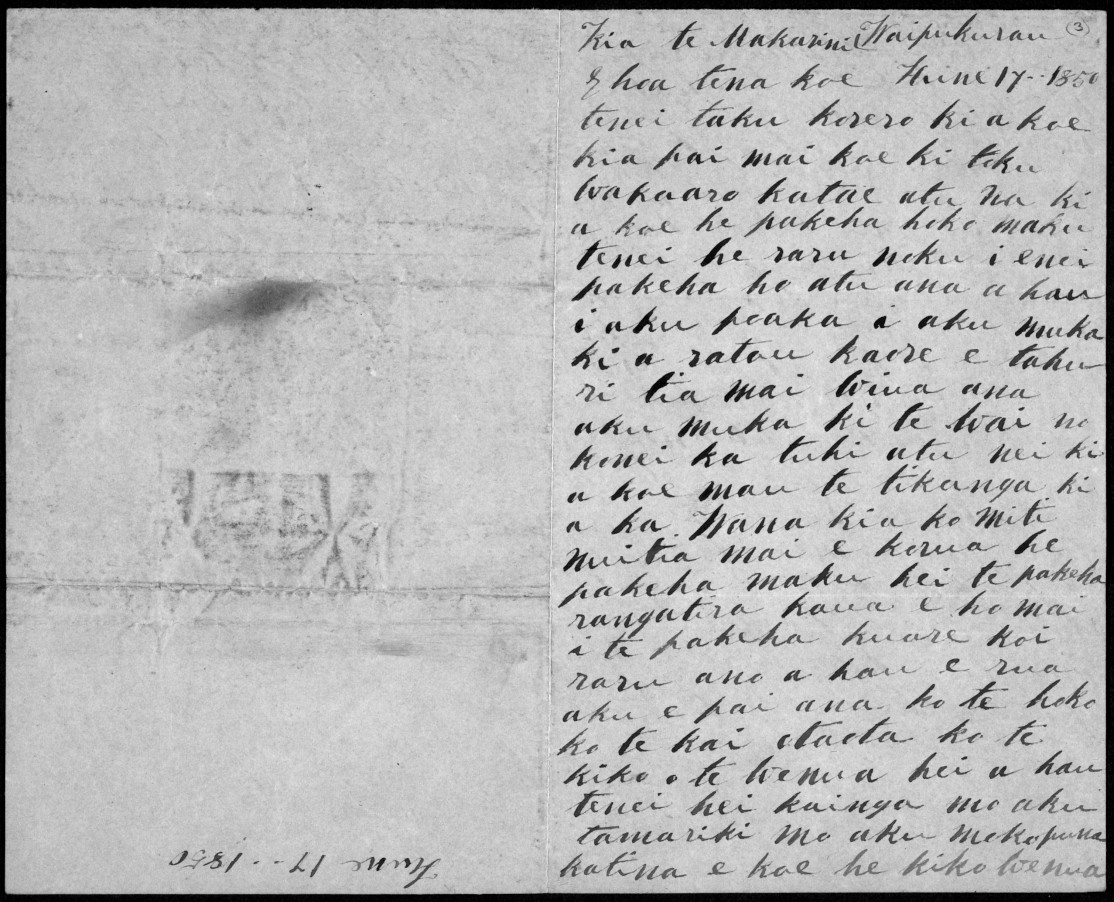 Kia te Makarini Waipukurau ③
E hoa tena koe Hune 17-- 1850
tenei taku korero ki a koe
kia pai mai koe ki toku
wakaaro katae atu na ki
a koe he pakeha hoko maku
tenei he raru noku i enei
pakeha ho atu ana a hau
i aku poaka i aku muka
ki a ratou kaore e tahu
ri tia mai wiua ana
aku muka ki te wai no
konei ka tuhi atu nei ki
a koe mau te tikanga ki
a ka Wana kia ko miti
nuitia mai e korua he
pakeha maku hei te pakeha
rangatira kaua e ho mai
i te pakeha kuare koi
raru ano a hau e rua
aku e pai ana ko te hoko
ko te kai otaota ko te
kiko o te wenua hei a hau
tenei hei kainga mo aku
tamariki mo aku mokopuna
katina e koe he kiko wenua
Hune 17-- 1850